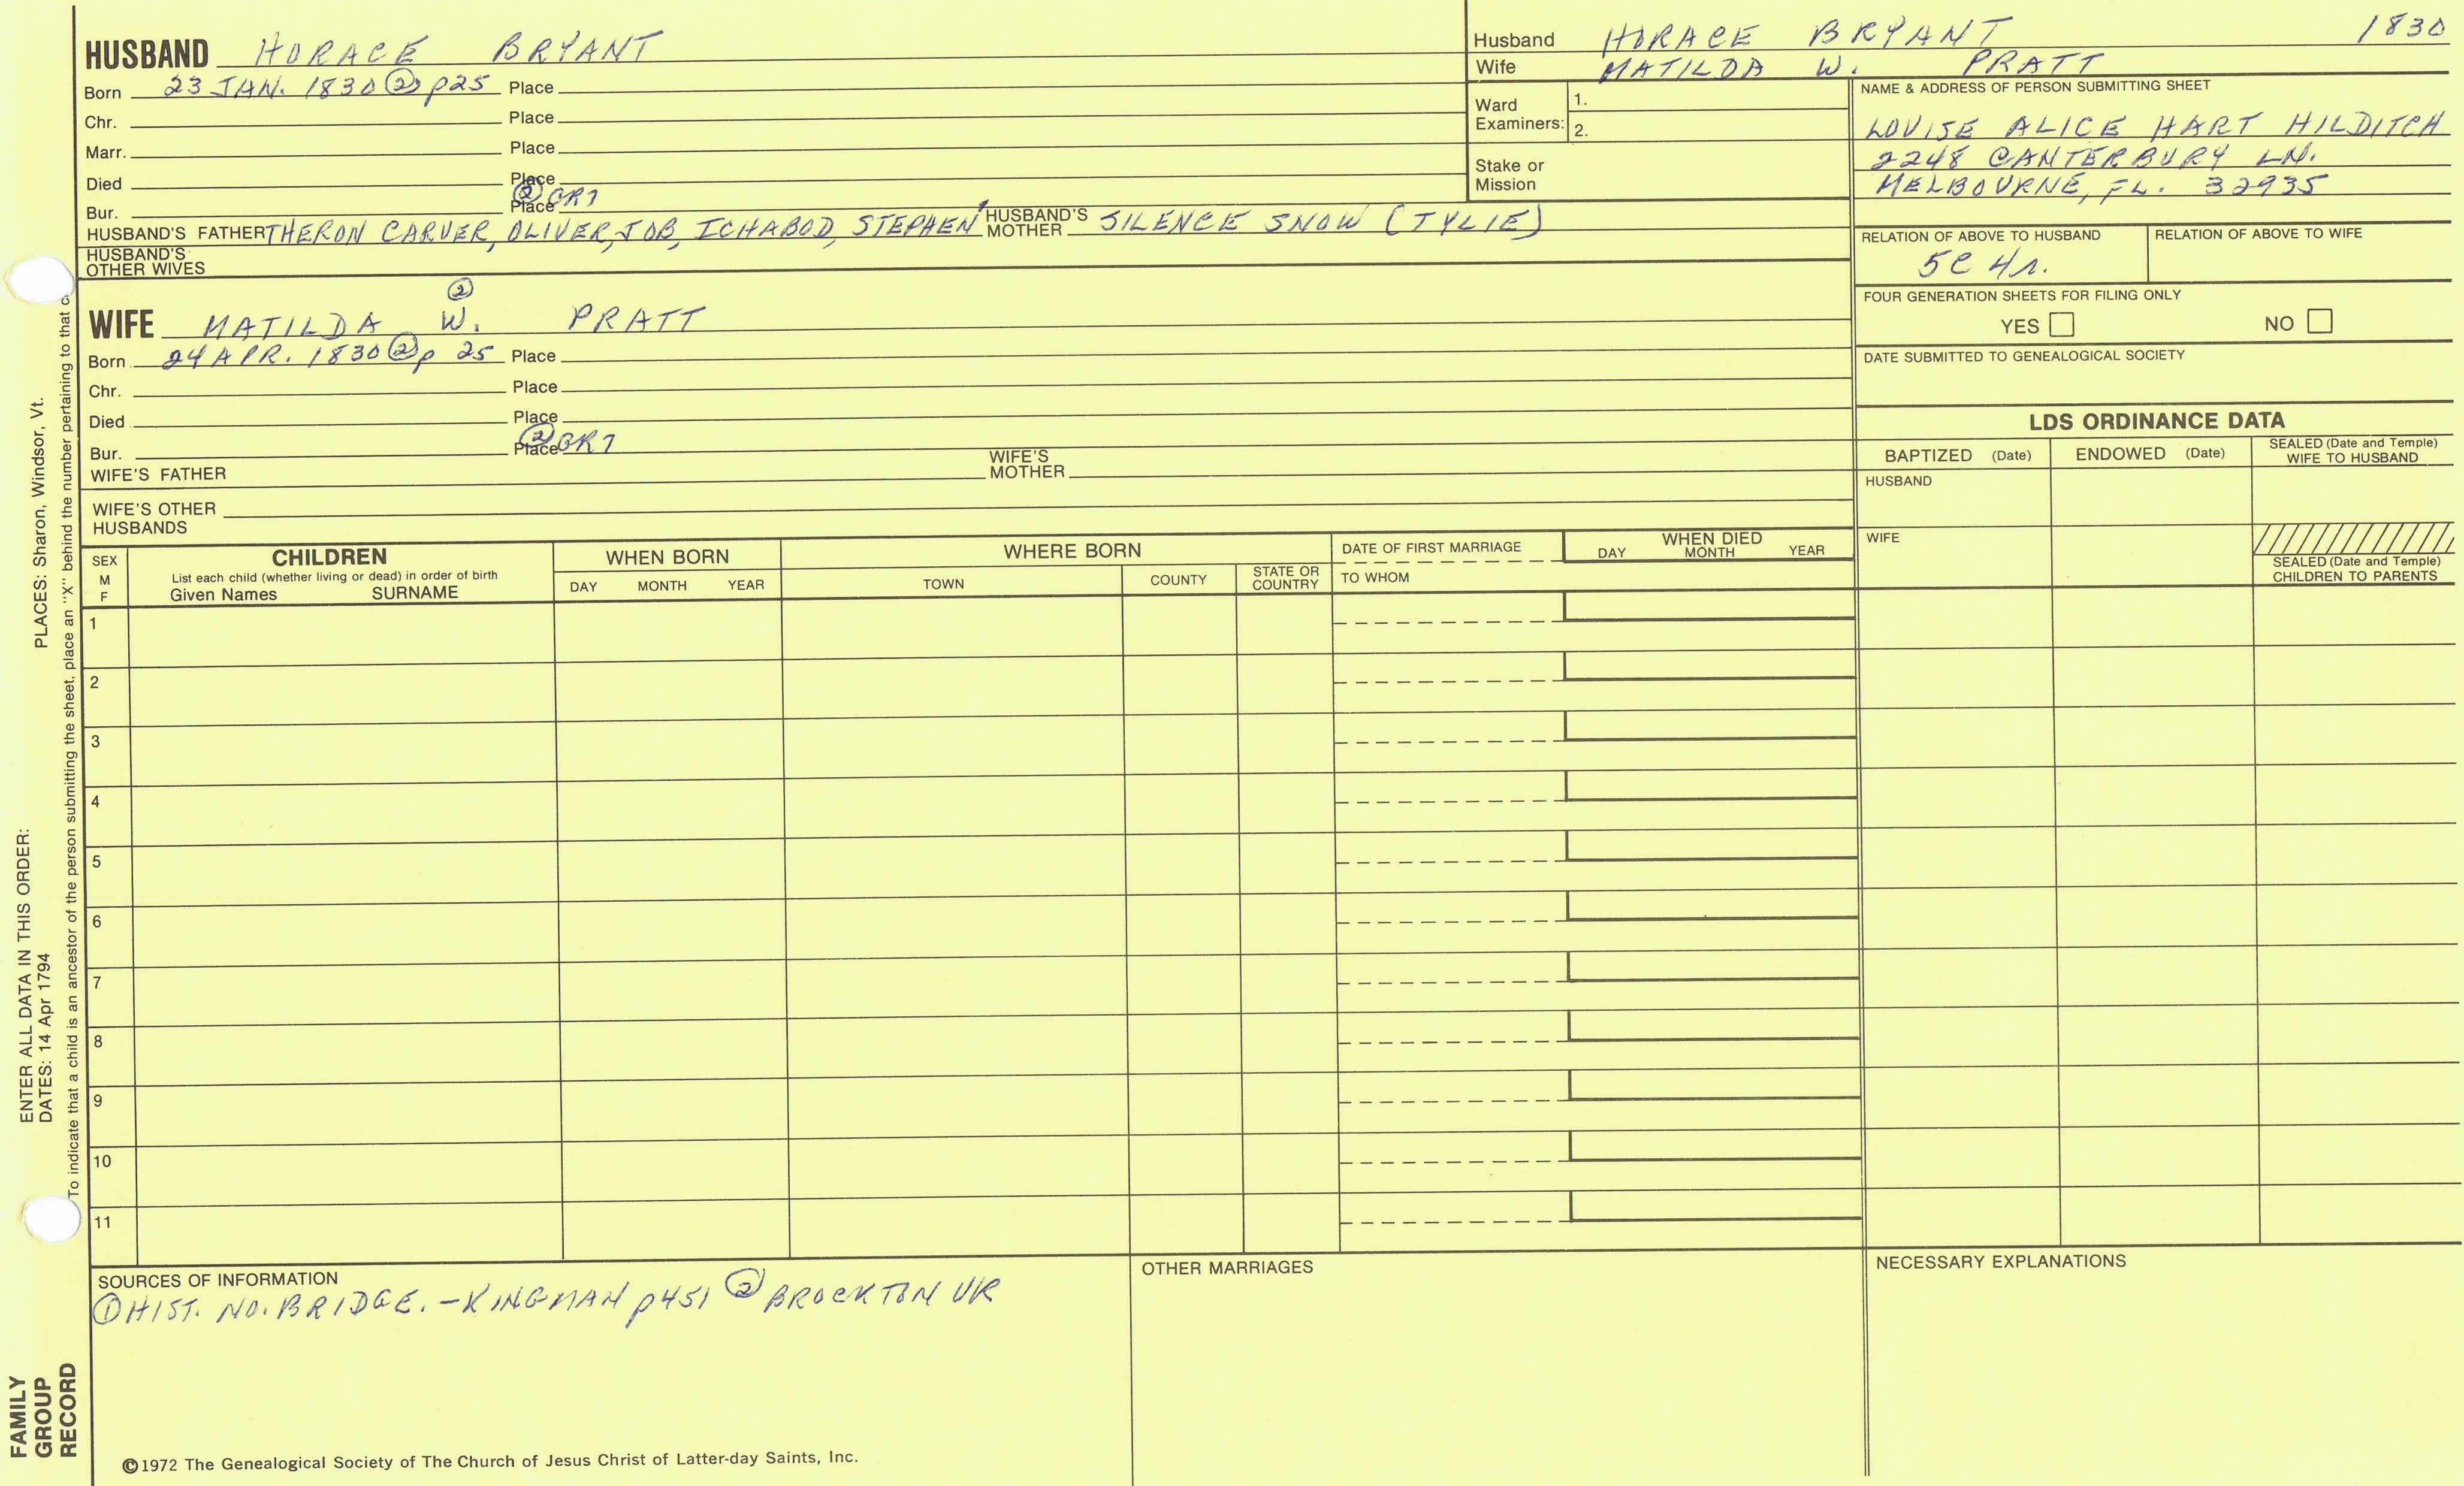 HUSBAND HORACE BRYANT
Born 23 JAN. 1830 ② p25 Place
Chr. Place
Marr. Place
Died Place
Bur. Place ② GR7
HUSBAND'S FATHER THERON CARVER, OLIVER, JOB, ICHABOD, STEPHEN HUSBAND'S MOTHER SILENCE SNOW (TYLIE)
HUSBAND'S OTHER WIVES
Husband HORACE BRYANT 1830
Wife MATILDA W. PRATT
Ward Examiners: 1.
2.
Stake or Mission
NAME & ADDRESS OF PERSON SUBMITTING SHEET
LOUISE ALICE HART HILDITCH
2248 CANTERBURY LN.
MELBOURNE, FL. 32935
RELATION OF ABOVE TO HUSBAND RELATION OF ABOVE TO WIFE
5C 4r.
FOUR GENERATION SHEETS FOR FILING ONLY
YES NO
DATE SUBMITTED TO GENEALOGICAL SOCIETY
②
WIFE MATILDA W. PRATT
Born 24 APR. 1830 ② p 25 Place
Chr. Place
Died Place
Bur. Place ② GR7
WIFE'S FATHER WIFE'S MOTHER
WIFE'S OTHER HUSBANDS
LDS ORDINANCE DATA
BAPTIZED (Date) ENDOWED (Date) SEALED (Date and Temple) WIFE TO HUSBAND
HUSBAND
WIFE
SEALED (Date and Temple) CHILDREN TO PARENTS
SEX M F CHILDREN
List each child (whether living or dead) in order of birth
Given Names SURNAME
WHEN BORN
DAY MONTH YEAR
WHERE BORN
TOWN COUNTY STATE OR COUNTRY
DATE OF FIRST MARRIAGE
TO WHOM
WHEN DIED
DAY MONTH YEAR
1
2
3
4
5
6
7
8
9
10
11
SOURCES OF INFORMATION
① HIST. NO. BRIDGE. - KINGMAN p451 ② BROCKTON VR
OTHER MARRIAGES
NECESSARY EXPLANATIONS
©1972 The Genealogical Society of The Church of Jesus Christ of Latter-day Saints, Inc.
FAMILY GROUP RECORD
ENTER ALL DATA IN THIS ORDER:
DATES: 14 Apr 1794 PLACES: Sharon, Windsor, Vt.
To indicate that a child is an ancestor of the person submitting the sheet, place an "X" behind the number pertaining to that